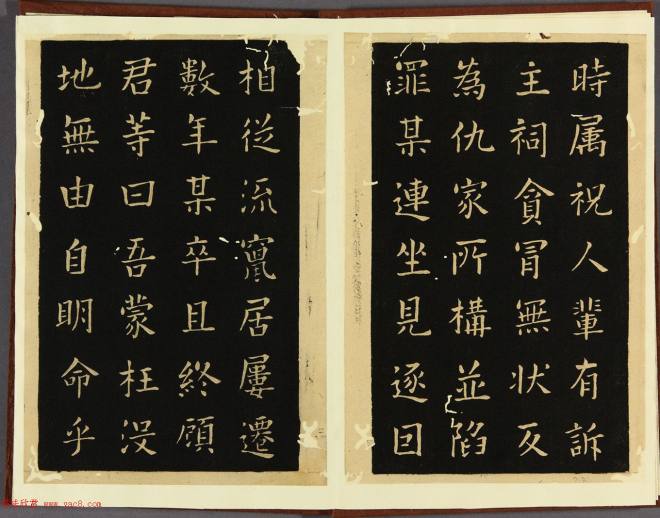 時属祝人輩有訴
主祠貪冒無状反
為仇家所構並陷
罪某連坐見逐囙
相従流竄居屢遷
數年某卒且終顧
君等曰吾蒙枉没
地無由自明命乎
www.yac8.com